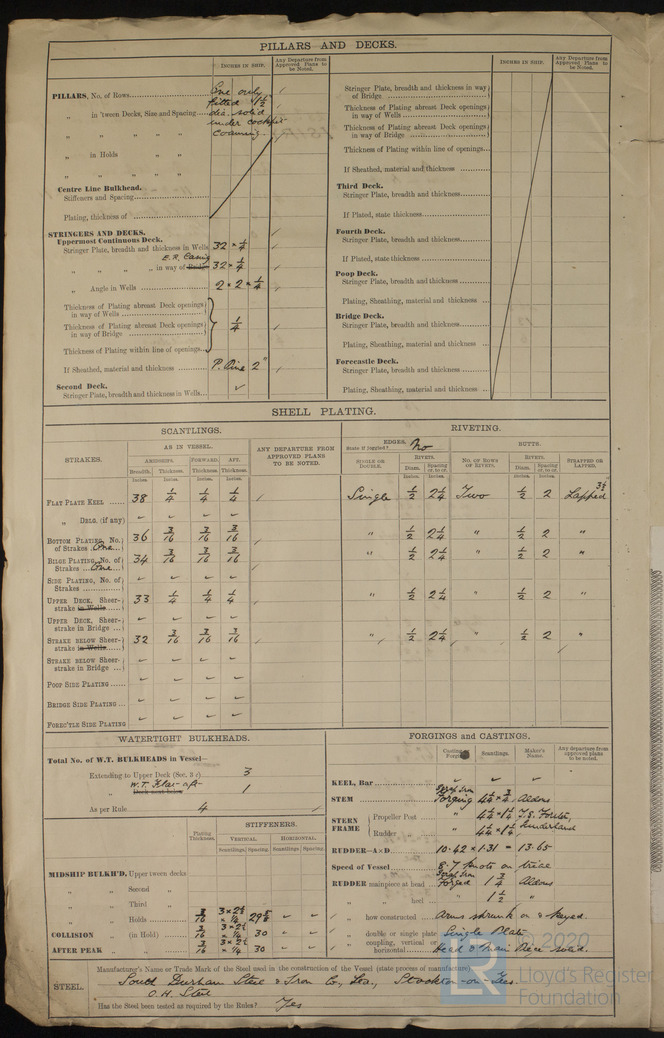 PILLARS AND DECKS.
INCHES IN SHIP.
Any Departure from Approved Plans to be Noted.
PILLARS, No. of Rows
One only
„ in 'tween Decks, Size and Spacing
fitted 1½
dia. solid
„ „ „ „
under cockpit
coaming.
„ in Holds „ „
„ „ „ „
Centre Line Bulkhead.
Stiffeners and Spacing
Plating, thickness of
STRINGERS AND DECKS.
Uppermost Continuous Deck.
Stringer Plate, breadth and thickness in Wells 32 × ¼
E.R. Casing
„ „ „ „ in way of Bridge 32 × ¼
„ Angle in Wells 2 × 2 × ¼
Thickness of Plating abreast Deck openings in way of Wells
Thickness of Plating abreast Deck openings in way of Bridge ¼
Thickness of Plating within line of openings
If Sheathed, material and thickness P. Pine 2"
Second Deck.
Stringer Plate, breadth and thickness in Wells
INCHES IN SHIP.
Any Departure from Approved Plans to be Noted.
Stringer Plate, breadth and thickness in way of Bridge
Thickness of Plating abreast Deck openings in way of Wells
Thickness of Plating abreast Deck openings in way of Bridge
Thickness of Plating within line of openings
If Sheathed, material and thickness
Third Deck.
Stringer Plate, breadth and thickness
If Plated, state thickness
Fourth Deck.
Stringer Plate, breadth and thickness
If Plated, state thickness
Poop Deck.
Stringer Plate, breadth and thickness
Plating, Sheathing, material and thickness
Bridge Deck.
Stringer Plate, breadth and thickness
Plating, Sheathing, material and thickness
Forecastle Deck.
Stringer Plate, breadth and thickness
Plating, Sheathing, material and thickness
SHELL PLATING.
SCANTLINGS.
RIVETING.
STRAKES.
AS IN VESSEL.
AMIDSHIPS. FORWARD. AFT.
Breadth. Thickness. Thickness. Thickness.
Inches. Inches. Inches. Inches.
ANY DEPARTURE FROM APPROVED PLANS TO BE NOTED.
EDGES. State if joggled? No
SINGLE OR DOUBLE.
RIVETS.
Diam. Spacing cr. to cr.
Inches. Inches.
BUTTS.
NO. OF ROWS OF RIVETS.
RIVETS.
Diam. Spacing cr. to cr.
Inches. Inches.
STRAPPED OR LAPPED.
FLAT PLATE KEEL 38 ¼ ¼ ¼ Single ½ 2¼ Two ½ 2 Lapped 3½
„ DBLG. (if any)
BOTTOM PLATING, No. of Strakes One 36 3/16 3/16 3/16 „ ½ 2¼ „ ½ 2 „
BILGE PLATING, No. of Strakes One 34 3/16 3/16 3/16 „ ½ 2¼ „ ½ 2 „
SIDE PLATING, No. of Strakes
UPPER DECK, Sheerstrake in Wells 33 ¼ ¼ ¼ „ ½ 2¼ „ ½ 2 „
UPPER DECK, Sheerstrake in Bridge
STRAKE BELOW Sheerstrake in Wells 32 3/16 3/16 3/16 „ ½ 2¼ „ ½ 2 „
STRAKE BELOW Sheerstrake in Bridge
POOP SIDE PLATING
BRIDGE SIDE PLATING
FOREC'TLE SIDE PLATING
WATERTIGHT BULKHEADS.
Total No. of W.T. BULKHEADS in Vessel—
Extending to Upper Deck (Sec. 3 c) 3
W.T. Flat aft
„ Deck next below 1
As per Rule 4
Plating Thickness.
STIFFENERS.
VERTICAL. HORIZONTAL.
Scantlings. Spacing. Scantlings. Spacing.
MIDSHIP BULKH'D, Upper tween decks
„ „ Second „
„ „ Third „
„ „ Holds 3/16 3 × 2½ × ¼ 29½
COLLISION „ (in Hold) 3/16 3 × 2½ × ¼ 30
AFTER PEAK „ „ 3/16 3 × 2½ × ¼ 30
FORGINGS and CASTINGS.
Scantlings.
Maker's Name.
Any departure from approved plans to be noted.
KEEL, Bar
STEM Scrap Iron Forging 4½ × ¾ Aldons
STERN FRAME
Propeller Post „ 4½ × 1¼
Rudder „ „ 4½ × 1¼ Sunderland
RUDDER—A×D 10.42 × 1.31 = 13.65
Speed of Vessel 8.7 knots on trial
RUDDER mainpiece at head Scrap Iron Forged 1¾ Aldons
„ „ heel „ 1½ „
„ how constructed Arms shrunk on & keyed.
„ double or single plate Single Plate
„ coupling, vertical or horizontal Head & Main Piece solid.
STEEL.
Manufacturer's Name or Trade Mark of the Steel used in the construction of the Vessel (state process of manufacture)
South Durham Steel & Iron Co, Ltd, Stockton-on-Tees.
O.H. Steel
Has the Steel been tested as required by the Rules? Yes
LR
© 2020
Lloyd's Register
Foundation